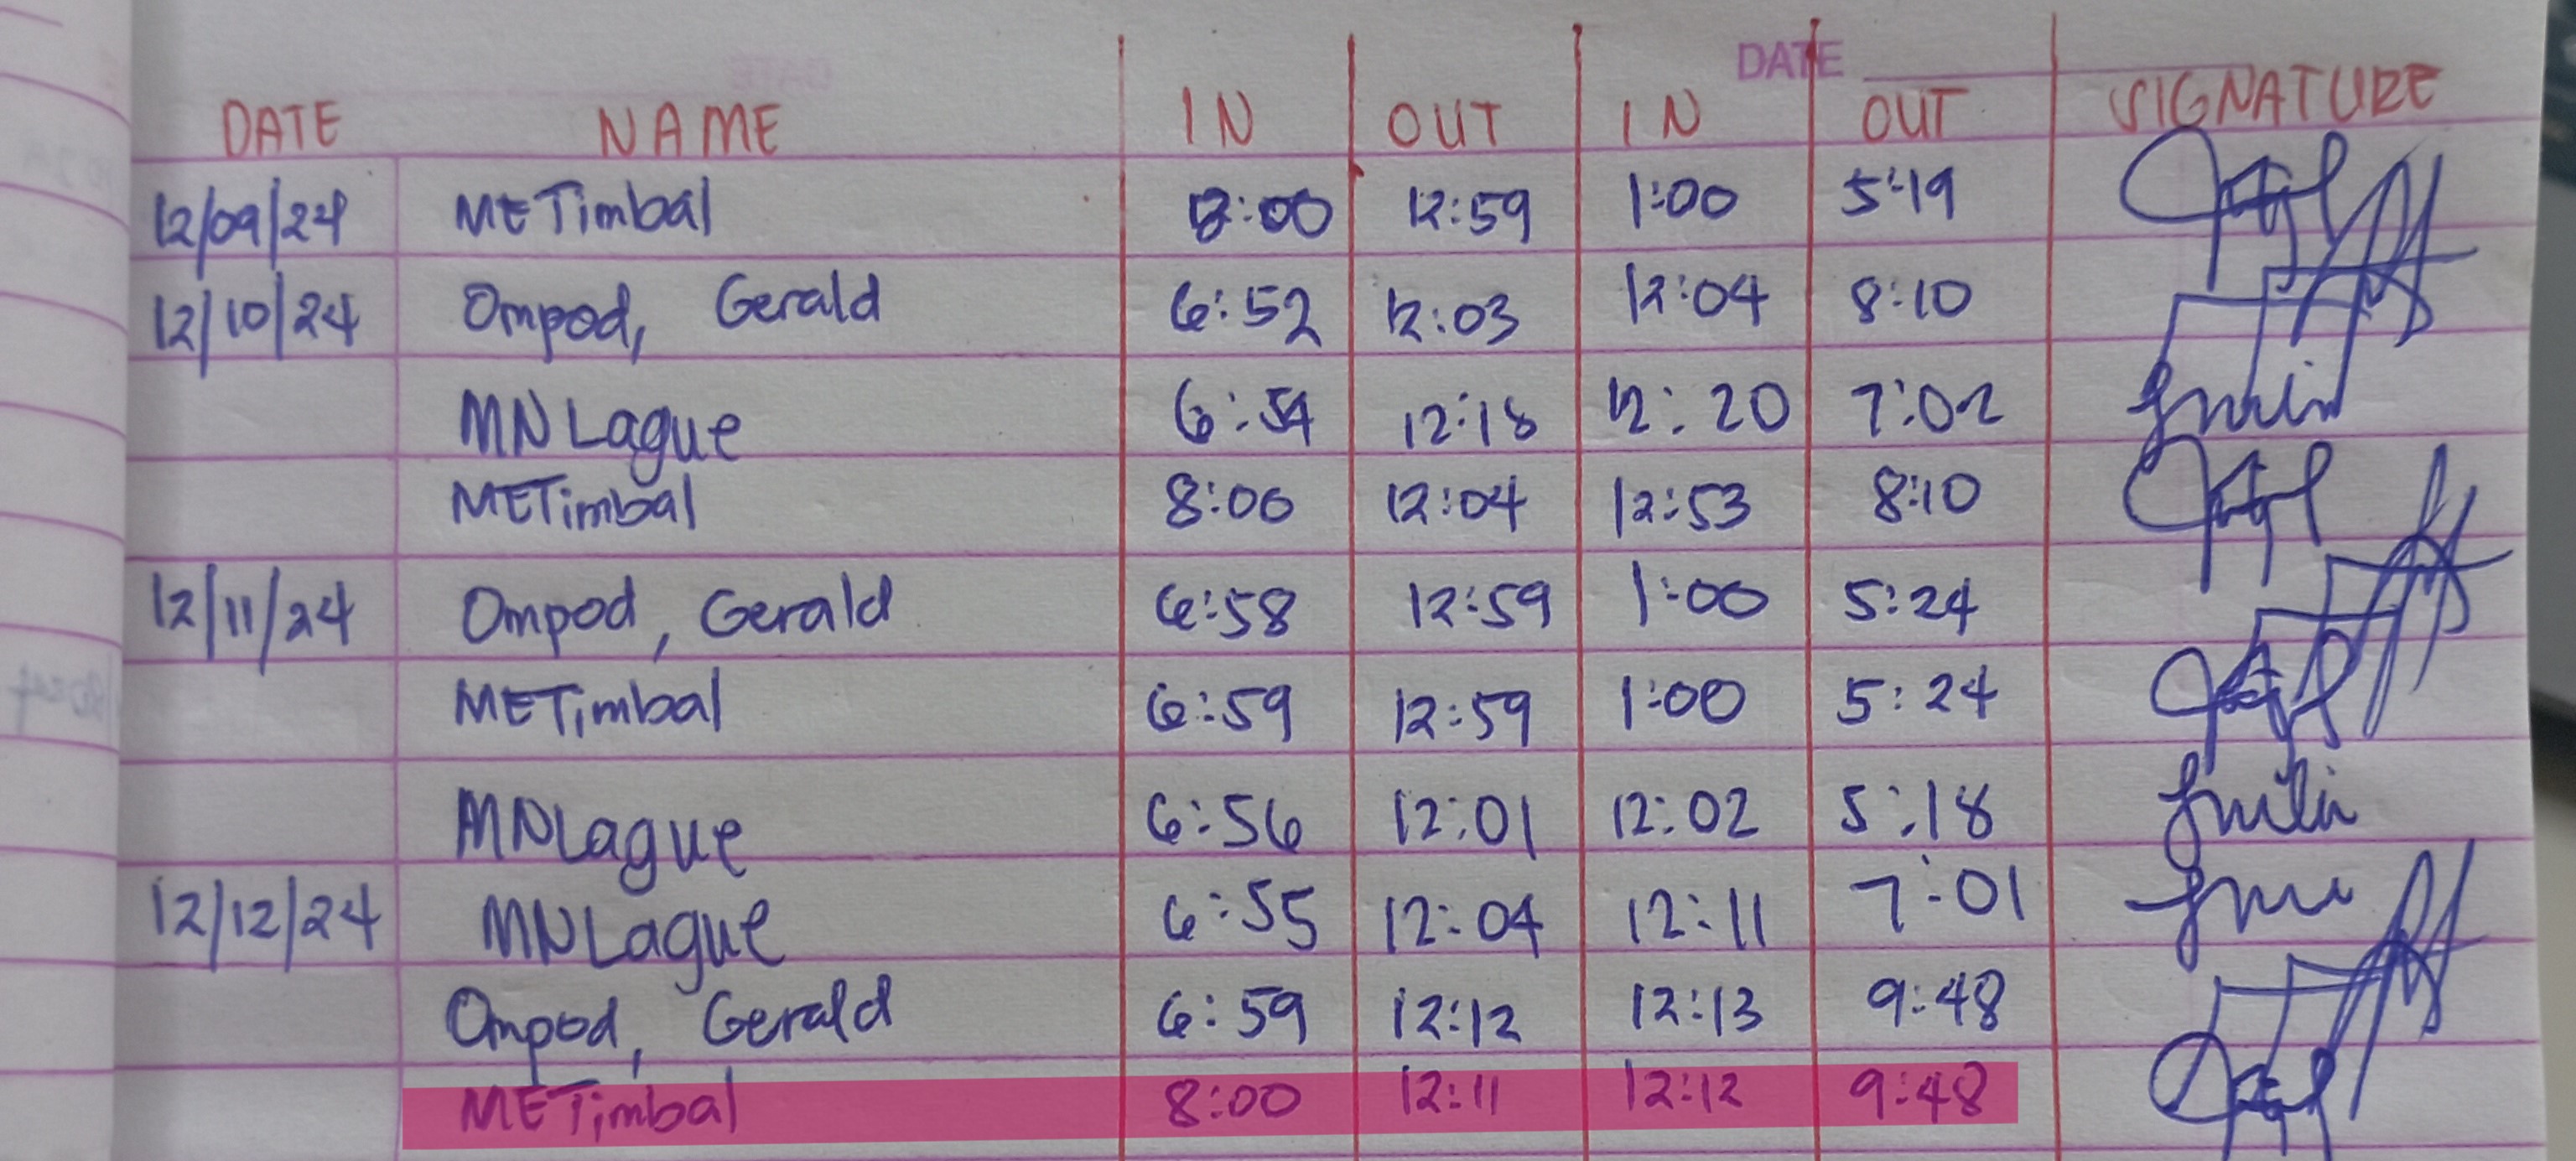 DATE
DATE NAME IN OUT IN OUT SIGNATURE
12/09/24 METimbal 8:00 12:59 1:00 5:19
12/10/24 Ompod, Gerald 6:52 12:03 12:04 8:10
MNLague 6:54 12:18 12:20 7:02
METimbal 8:00 12:04 12:53 8:10
12/11/24 Ompod, Gerald 6:58 12:59 1:00 5:24
METimbal 6:59 12:59 1:00 5:24
MNLague 6:56 12:01 12:02 5:18
12/12/24 MNLague 6:55 12:04 12:11 7:01
Ompod, Gerald 6:59 12:12 12:13 9:48
METimbal 8:00 12:11 12:12 9:48